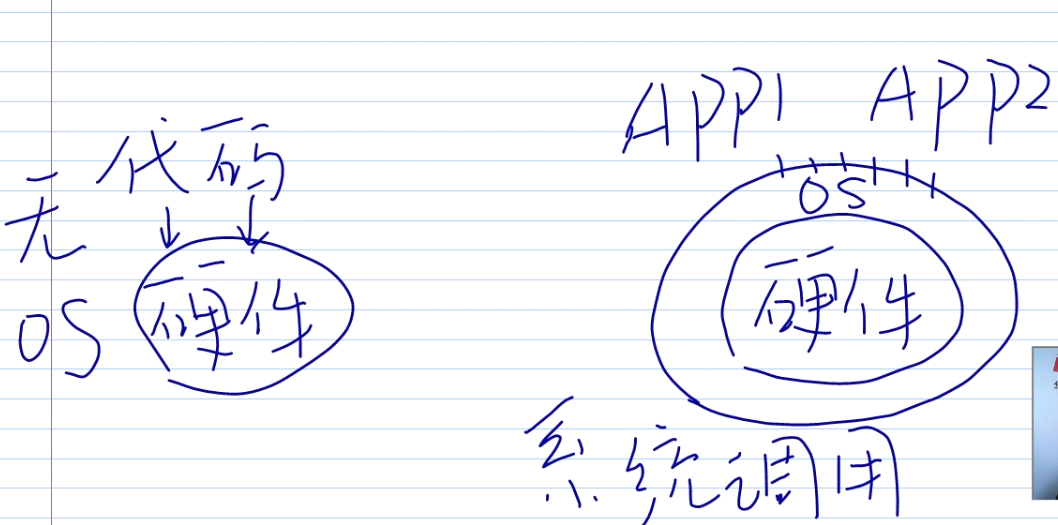 无
OS
代码
硬件
APP1 APP2
OS
硬件
系统调用